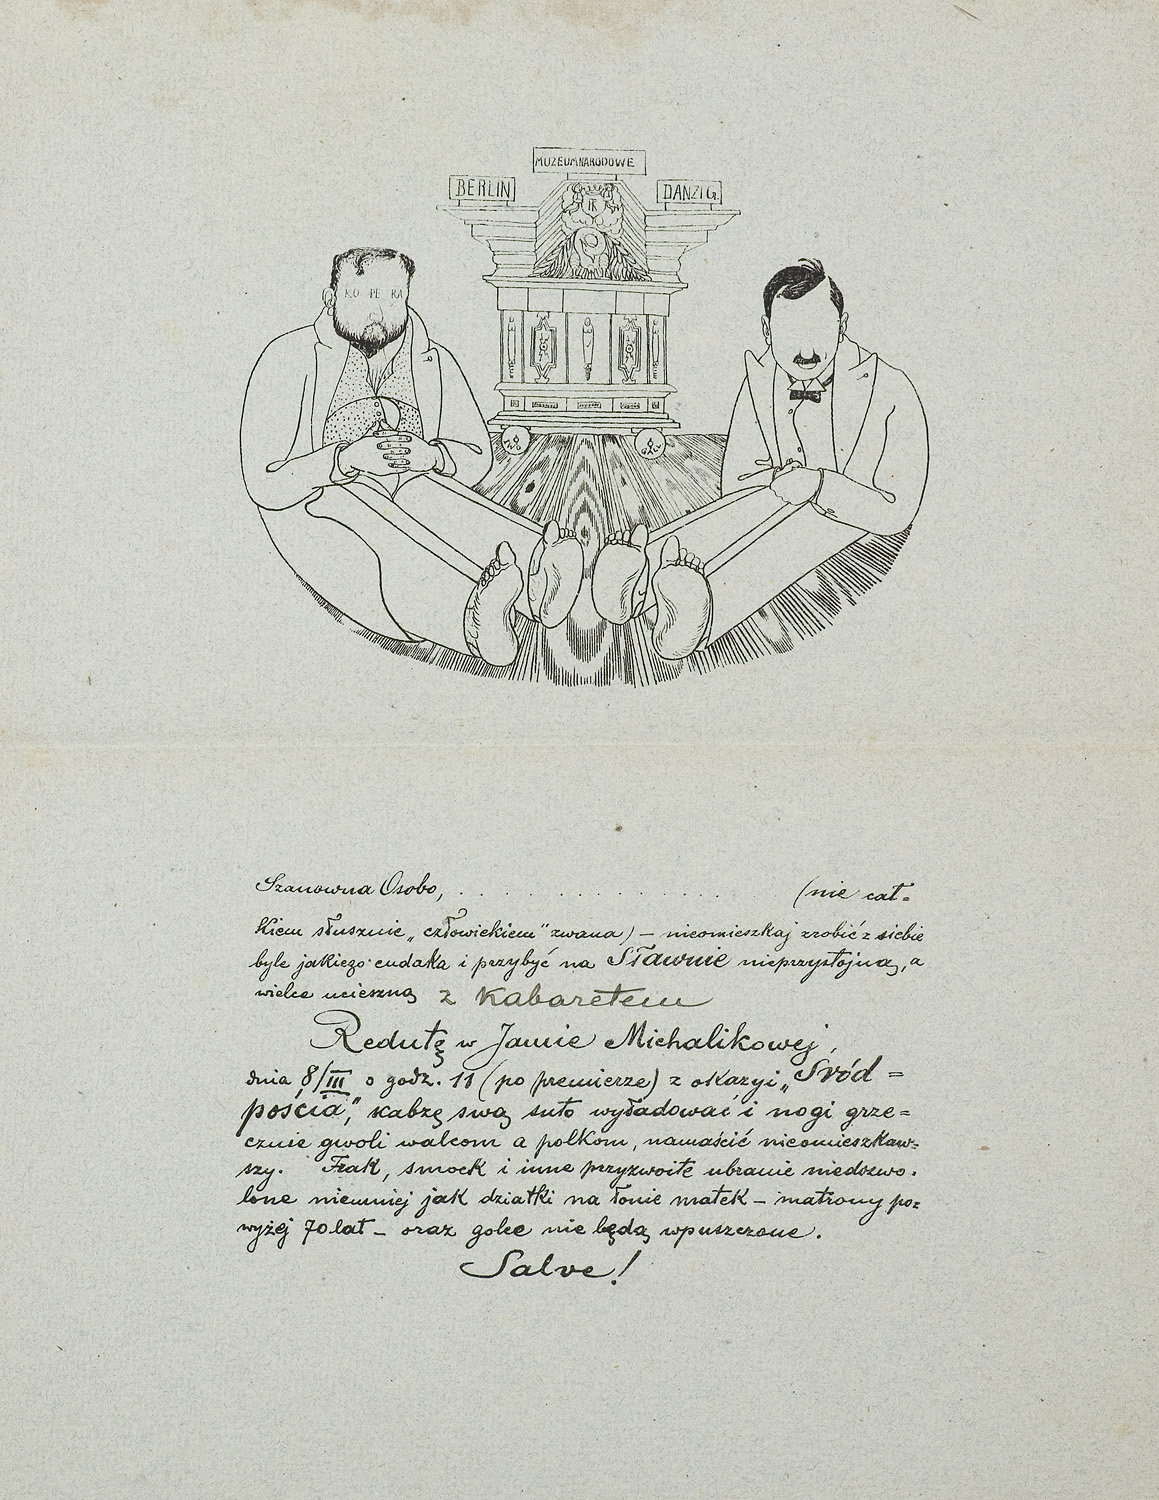 MUZEUM NARODOWE
BERLIN
DANZIG.
KO PE RA
Szanowna Osobo, . . . . . . . . . . . . . . (nie cał=
kiem słusznie „człowiekiem" zwana) — nieomieszkaj zrobić z siebie
byle jakiego cudaka i przybyć na Sławnie nieprzystojną, a
wielce ucieszną z Kabaretem
Redutę w Jamie Michalikowej,
dnia 8/III o godz. 11 (po premierze) z okazyi „Śród=
pościa", kabzę swą suto wyładować i nogi grze=
cznie gwoli walcom a polkom, namaścić nieomieszkaw=
szy. Frak, smock i inne przyzwoite ubranie niedozwo=
lone niemniej jak dziatki na łonie matek — matrony po=
wyżej 70 lat — oraz golce nie będą wpuszczone.
Salve!